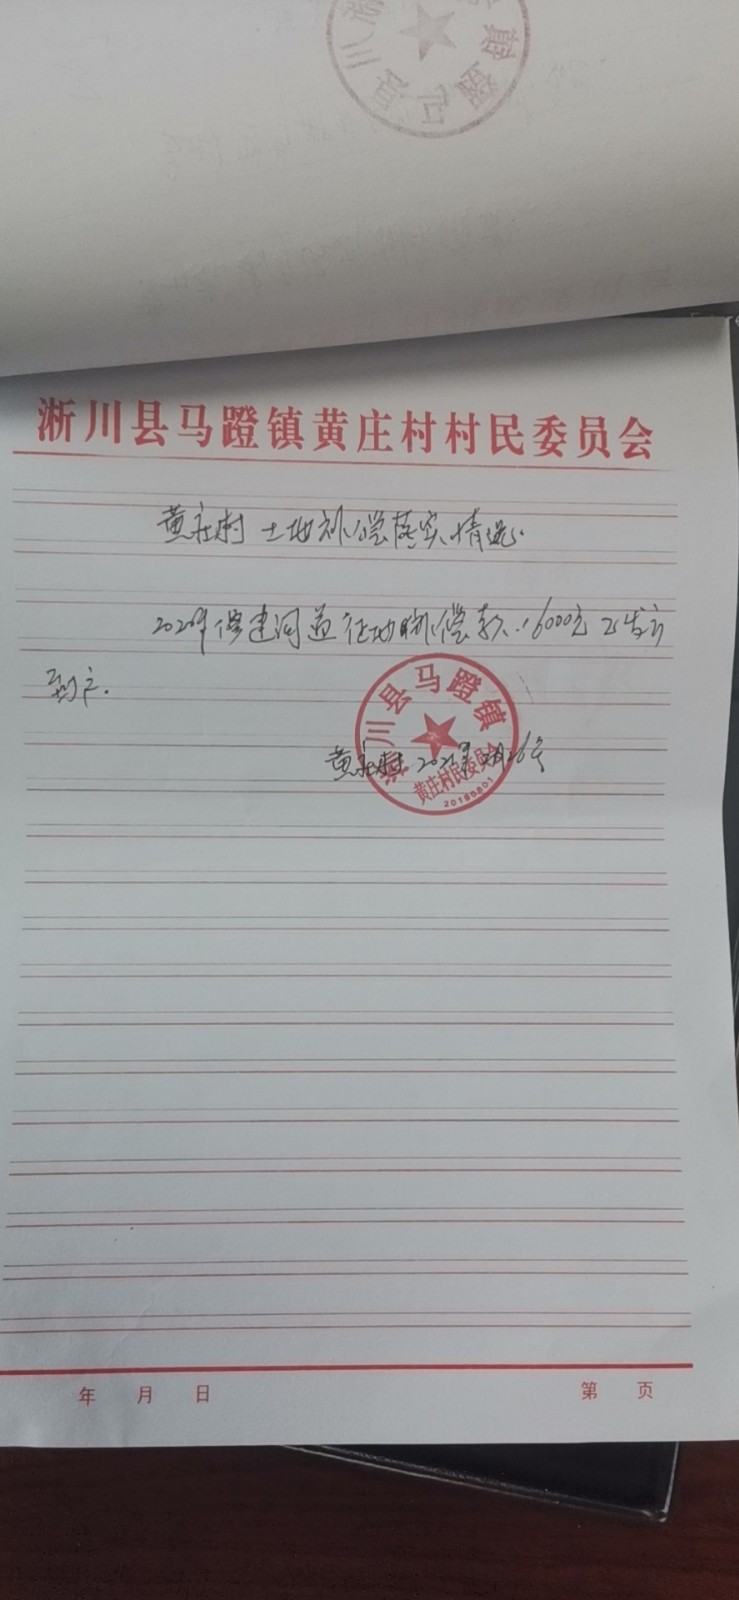 淅川县马蹬镇黄庄村村民委员会
黄庄村土地补偿落实情况.
修建河道征地补偿款16000元已发放
到户.
淅川县马蹬镇
黄庄村
黄庄村民委员会
20190801
年 月 日
第 页